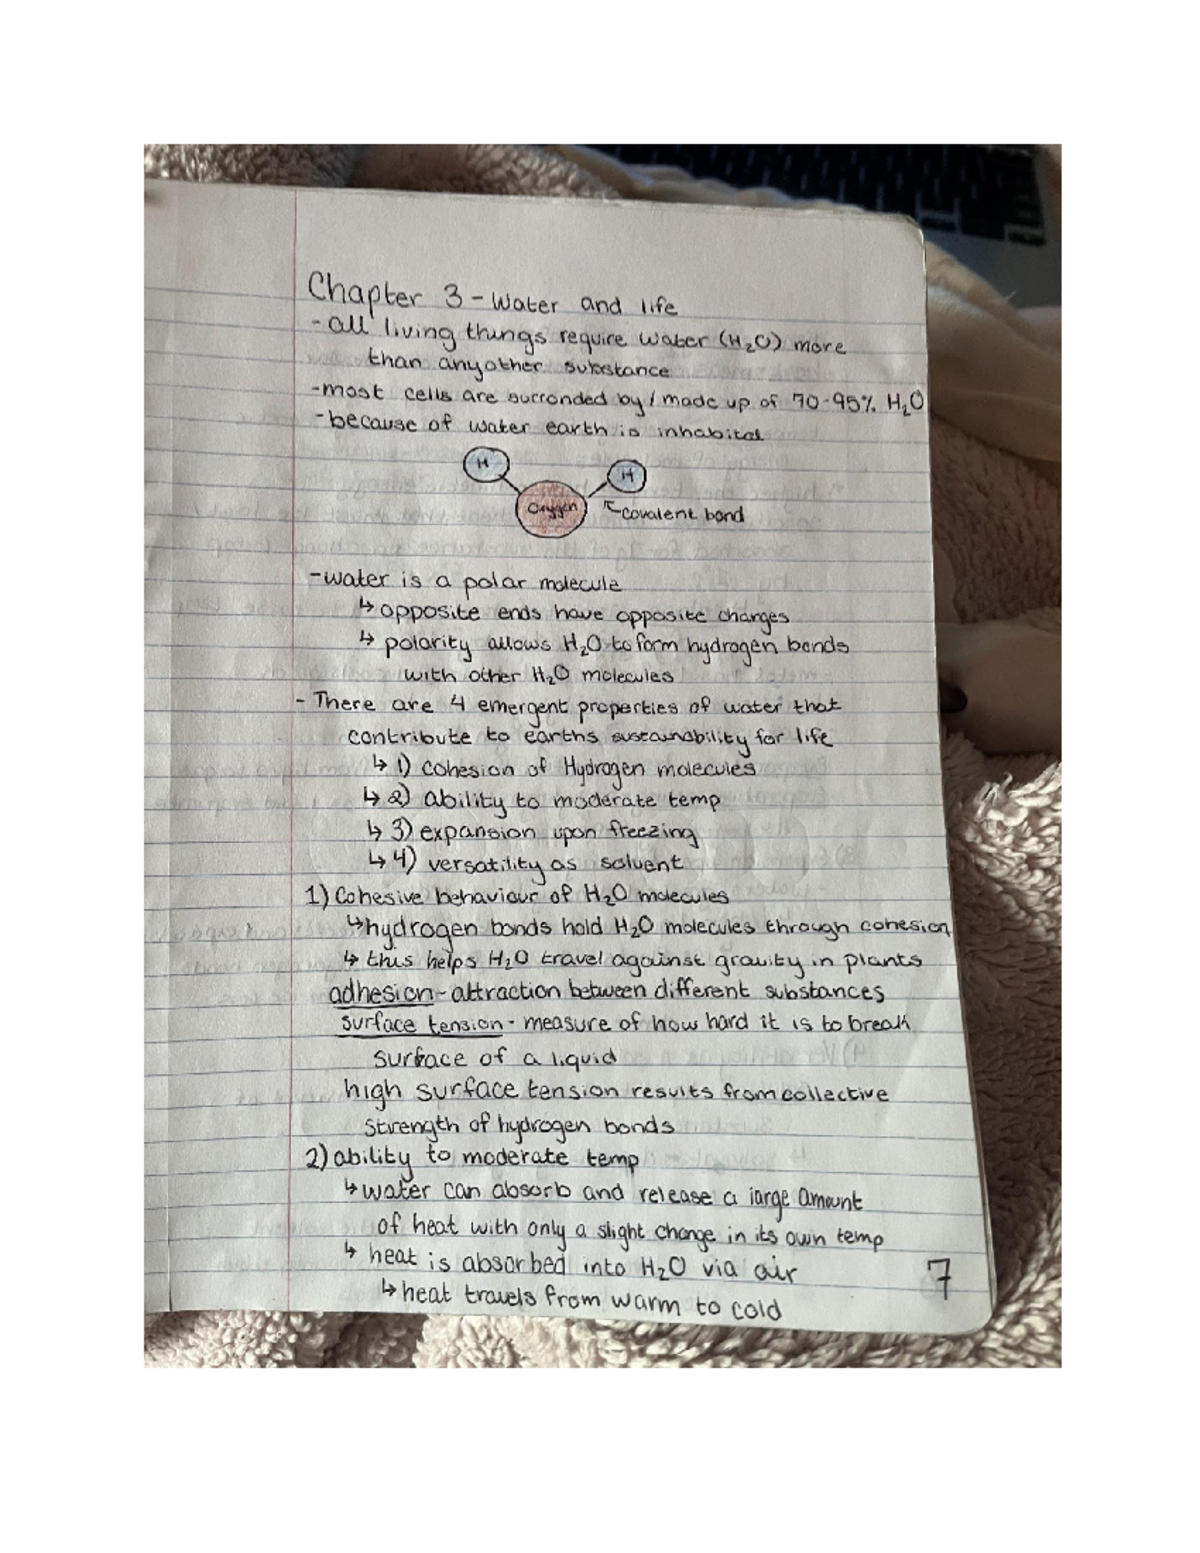 Chapter 3 - Water and life
- all living things require water (H₂O) more
than anyother substance
- most cells are surronded by / made up of 70-95% H₂O
- because of water earth is inhabital
H
H
Oxygen
covalent bond
- water is a polar molecule
↳ opposite ends have opposite charges
↳ polarity allows H₂O to form hydrogen bonds
with other H₂O molecules
- There are 4 emergent properties of water that
contribute to earths sustainability for life
↳ 1) cohesion of Hydrogen molecules
↳ 2) ability to moderate temp
↳ 3) expansion upon freezing
↳ 4) versatility as solvent
1) Cohesive behaviour of H₂O molecules
↳ hydrogen bonds hold H₂O molecules through cohesion
↳ this helps H₂O travel against gravity in plants
adhesion - attraction between different substances
surface tension - measure of how hard it is to break
surface of a liquid
high surface tension results from collective
strength of hydrogen bonds
2) ability to moderate temp
↳ water can absorb and release a large amount
of heat with only a slight change in its own temp
↳ heat is absorbed into H₂O via air
↳ heat travels from warm to cold
7